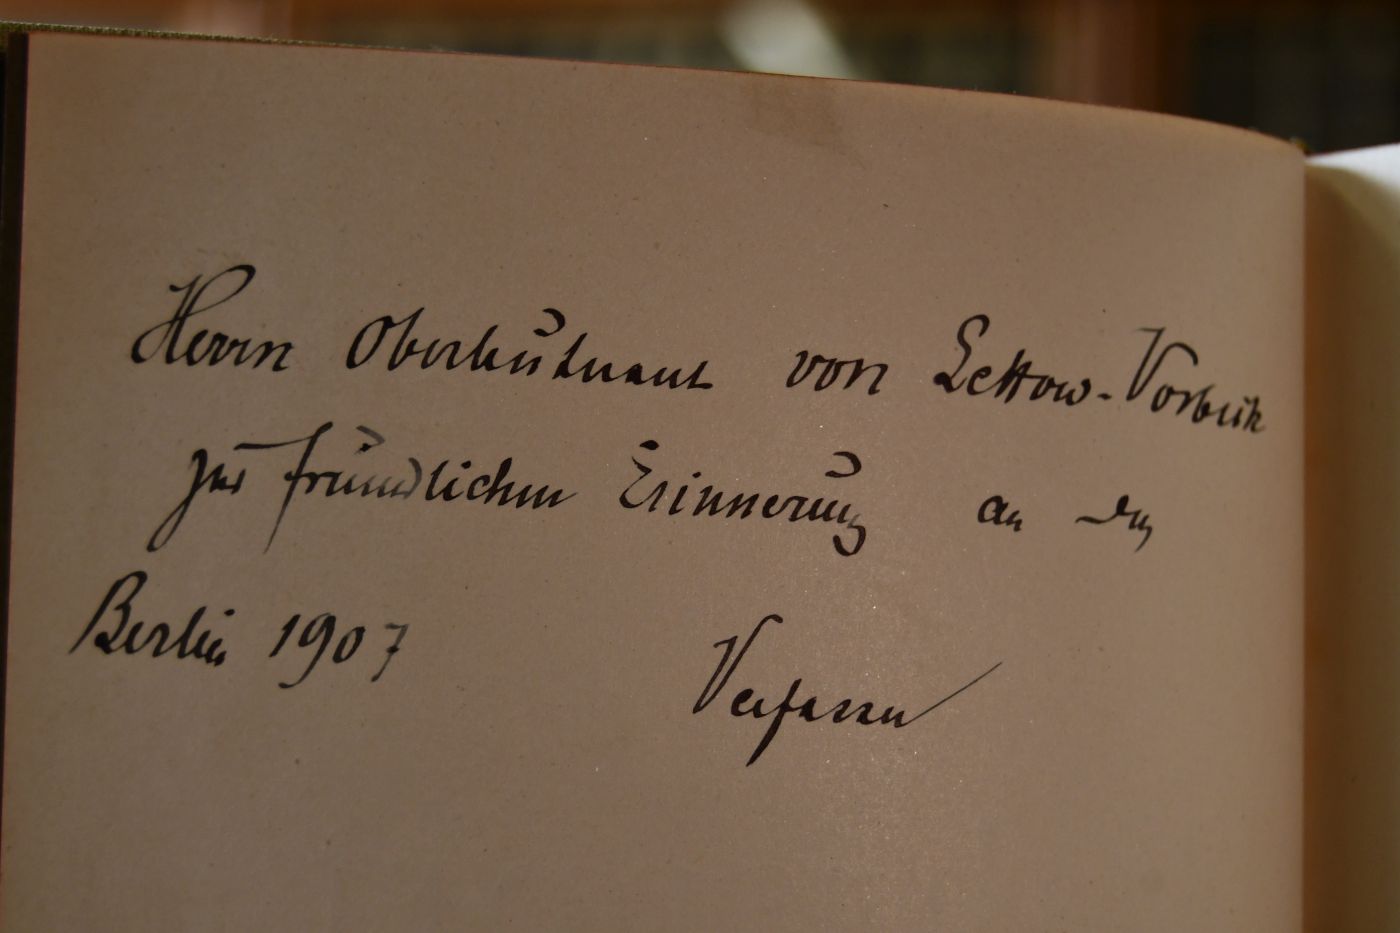 Herrn Oberleutnant von Lettow-Vorbeck
zur freundlichen Erinnerung an den
Berlin 1907
Verfasser